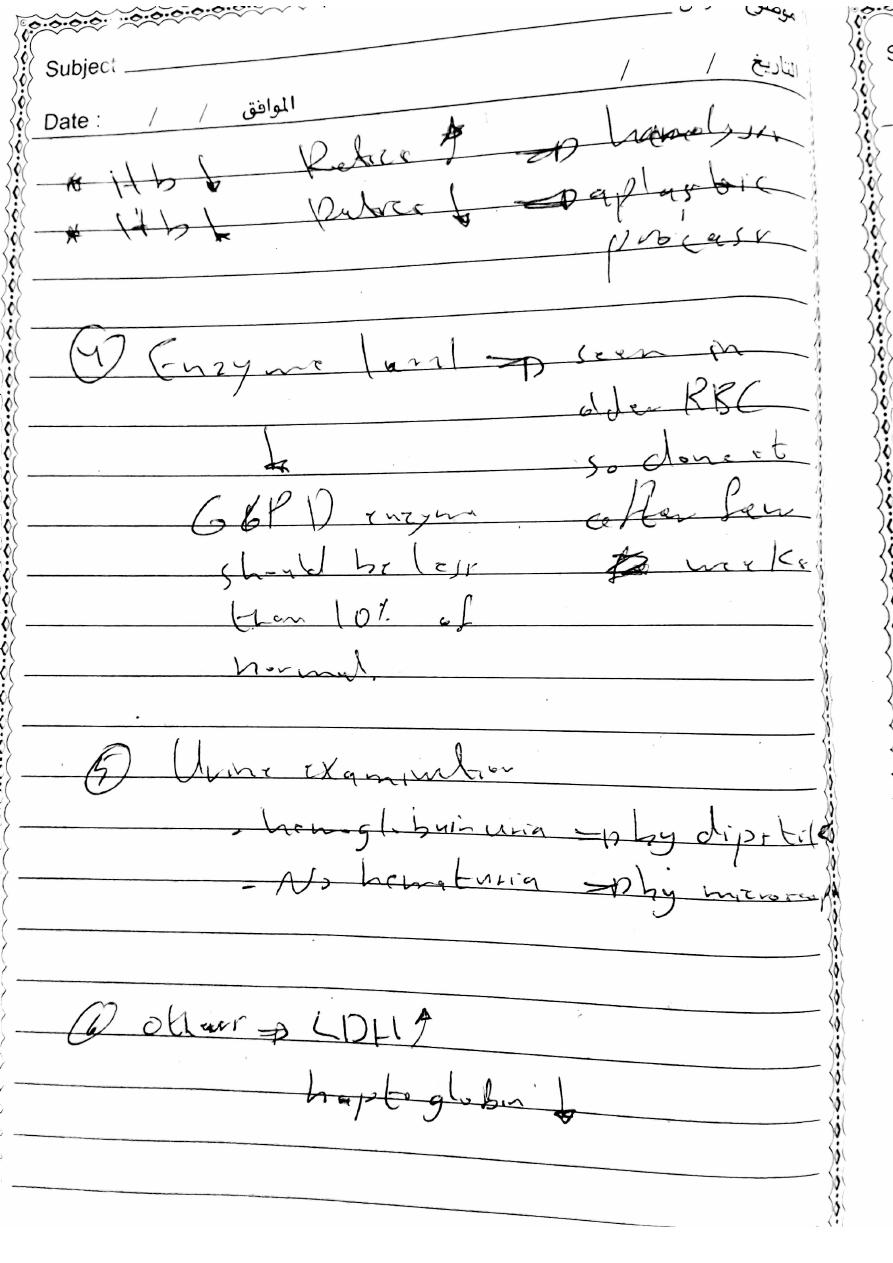 Subject
التاريخ / /
Date : / / الموافق
* Hb ↓ Retics ↑ ⇒ hemolysis
* Hb ↓ Retics ↓ ⇒ aplastic
process
④ Enzyme level ⇒ seen in
older RBC
↓ so done it
G6PD enzyme after few
should be less weeks
than 10% of
normal.
⑤ Urine examination
- hemoglobuinuria ⇒ by dipstick
- No hematuria ⇒ by microscop
⑥ others ⇒ LDH ↑
haptoglobin ↓